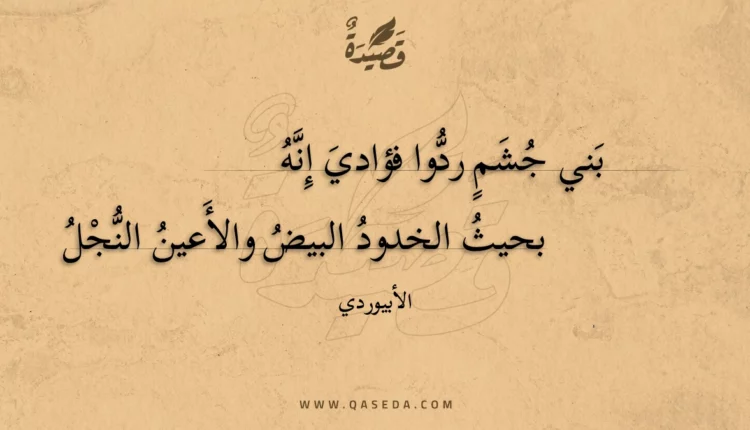 قَصِيْدَةٌ
بَني جُشَمٍ ردُّوا فؤاديَ إِنَّهُ
بحيثُ الخدودُ البيضُ والأَعينُ النُّجْلُ
الأبيوردي
WWW.QASEDA.COM